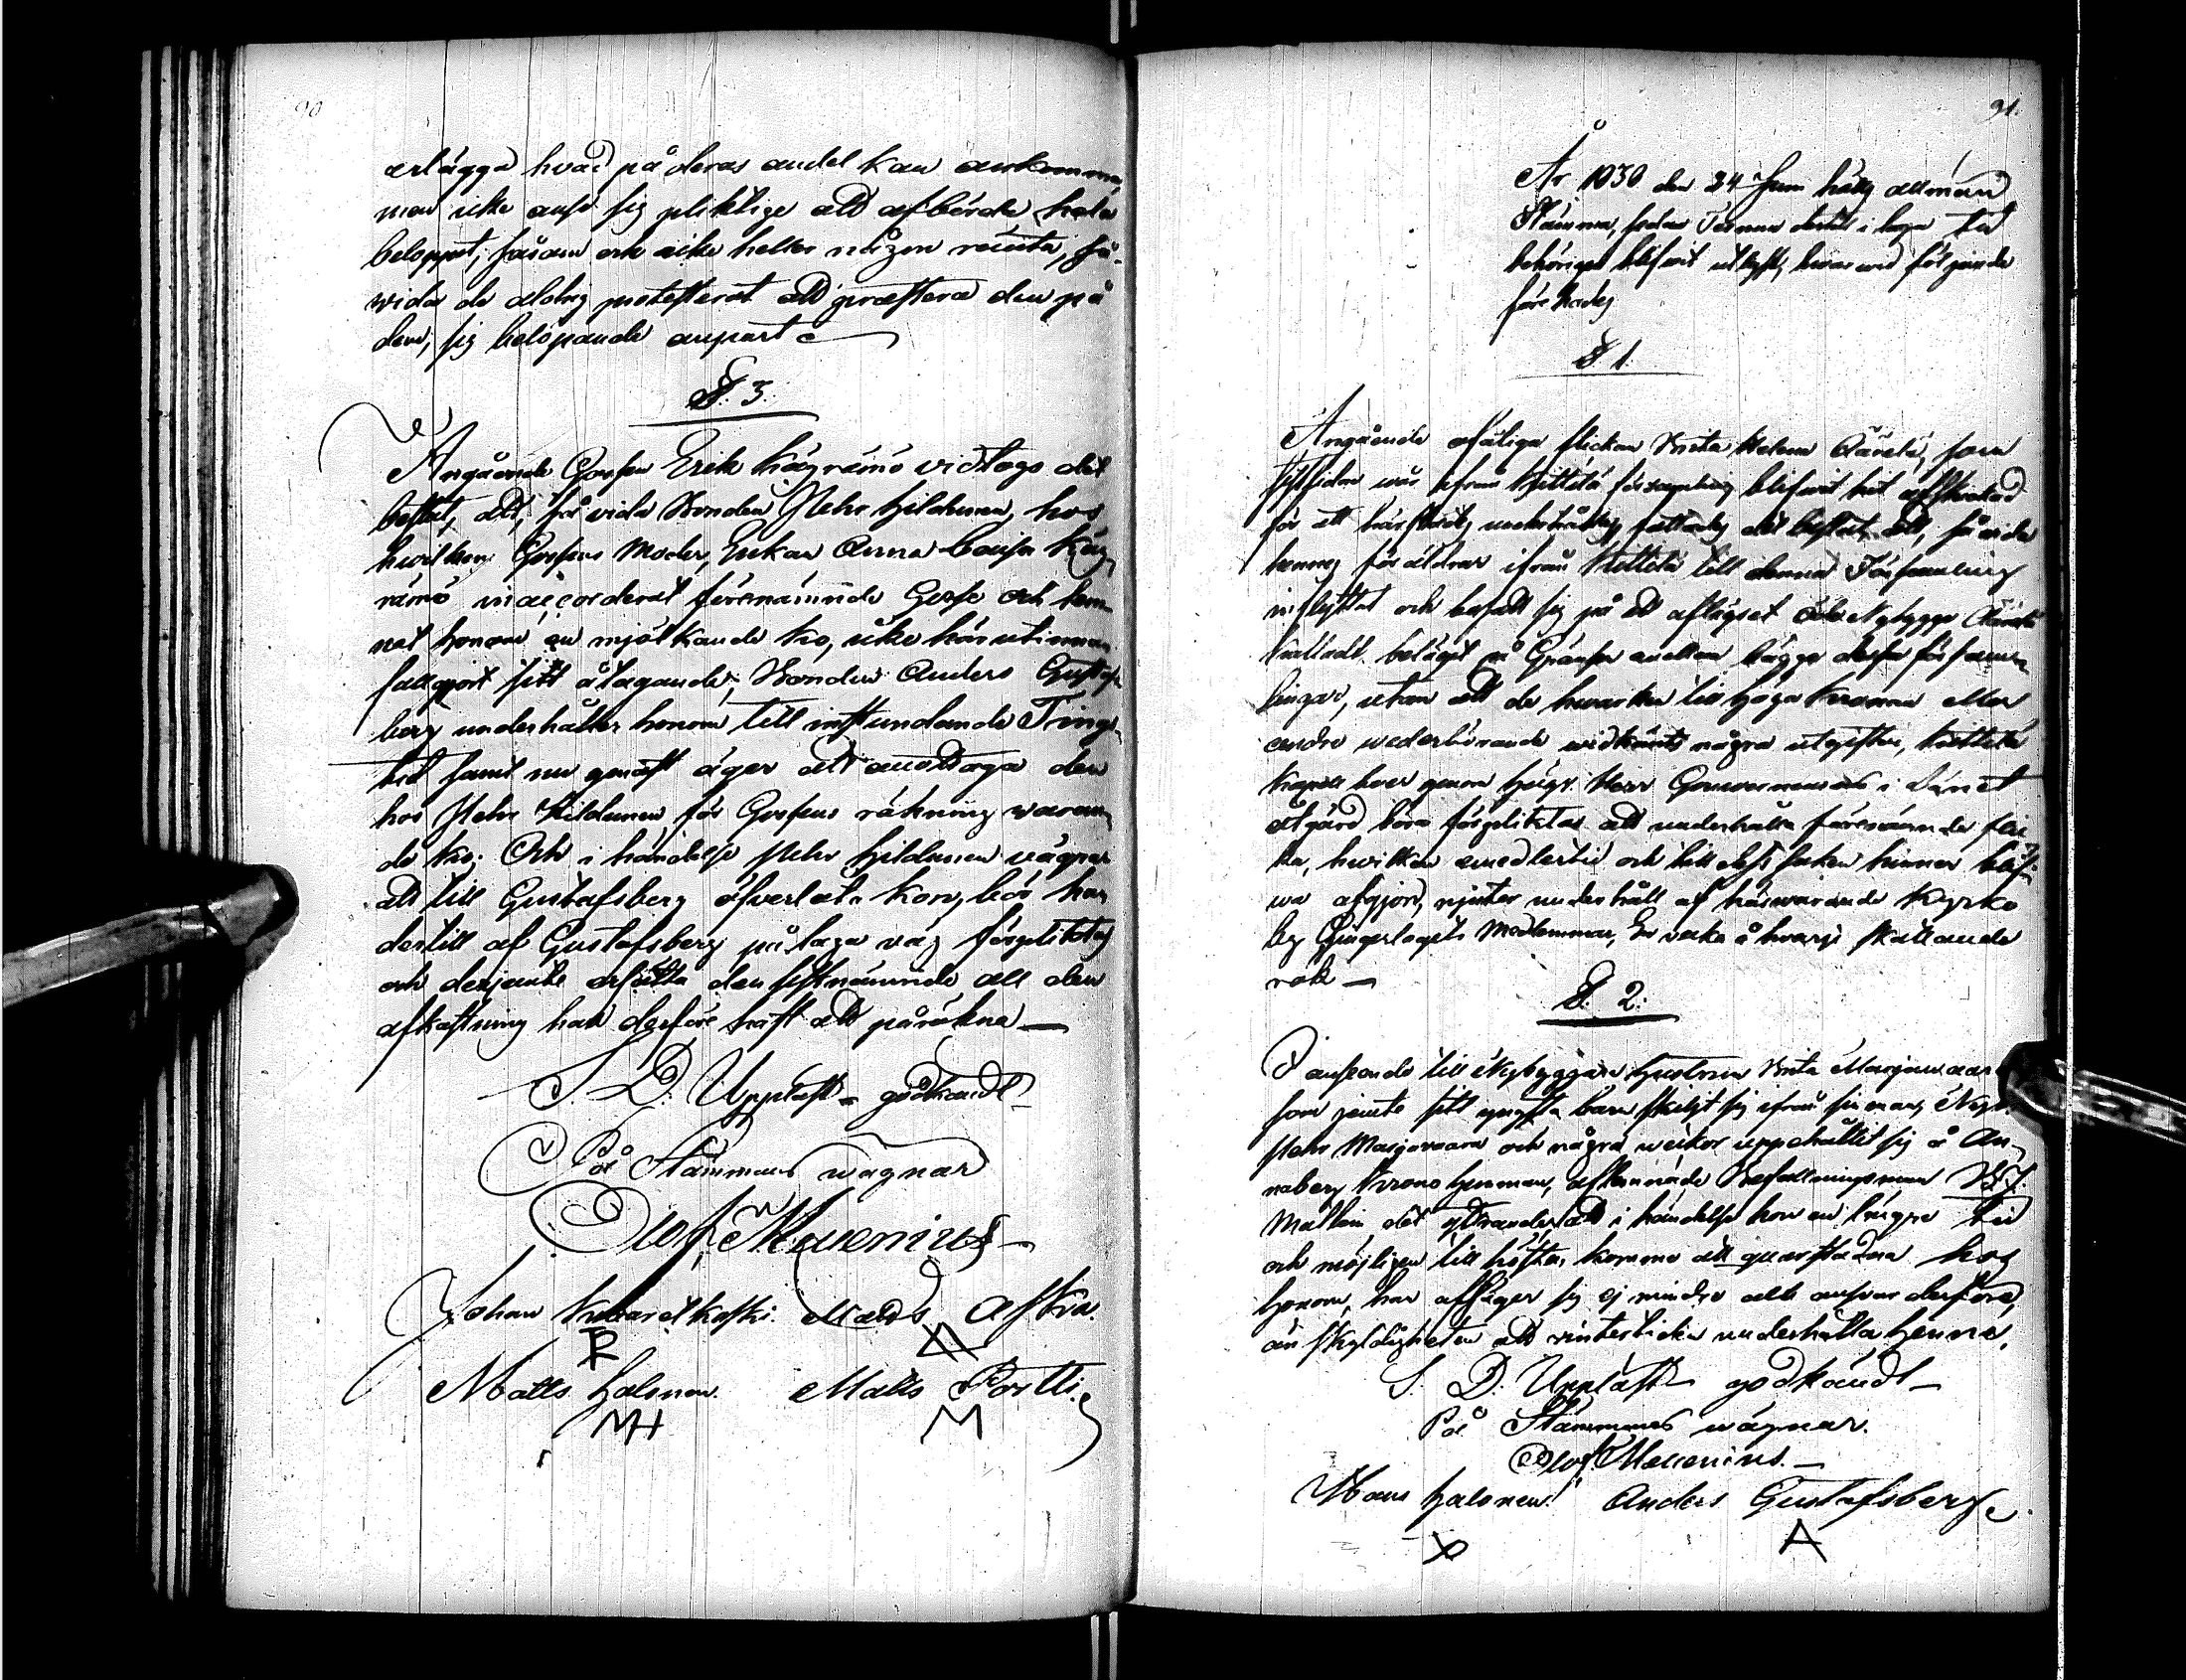 90
erlägga hvad på deras andel kan ankomma,
men icke anse sig pliktige att afbörda hela
beloppet, såsom ock icke heller någon ränta, så-
wida de aldrig protesterat att præstera den på
dem, sig belöpande anpart
§. 3.
Angående Gossen Erik Kägrämö vidtogs det
beslut, att, så vida Bonden Pehr Hildunen, hos
hvilken Gossens Moder, Enkan Anna Caisa Käg-
rämö inaccorderat förenämnde Gosse och lem-
nat honom en mjölkande ko, icke härutinnan
fullgjort sitt åtagande, Bonden Anders Gustafs-
berg underhåller honom till instundande Tings-
tid samt nu genast äger att emottaga den
hos Pehr Hildunen för Gossens räkning waran-
de ko; Och i händelse Pehr Hildunen vägrar
att till Gustafsberg öfverlåta kon, bör han
dertill af Gustafsberg på laga väg förpliktas
och derjemte ersätta den sistnämnde all den
afkastning han derföre haft att påräkna
S. D. Uppläst - godkändt
På Stämmans wägnar
Olof Mellenius
Johan Matts
Matts Halonen. Matts Portti.
MH M
91.
År 1830 den 24 Juni hölls allmän
Stämma, sedan Termin dertill i laga tid
behörigen blifwit utlyst, hwarwid följande
förehades
§. 1.
Angående ofärdiga flickan Brita Helena som
för att här underhållas, fattades det beslut, att, så vida
hennes föräldrar ifrån Kittilä till denna Församling
inflyttat och besatt sig på ett aflägset Nybygge
kalladt, beläget å Gränsen emellan bägge dessa försam-
lingar, utan att de hwarken till höga Kronan eller
andre wederbörande widkänts några utgifter, Kittilä
Kapell bör genom Högv. Herr Gouverneurens i Länet
åtgärd böra förpliktas att underhålla förenämnde flic-
ka, hwilken emedlertid och till dess saken hinner blif-
wa afgjord, njuter underhåll af härwarande Kyrko-
by Gingerlagets Medlemmar, En wecka å hvarje skattande
rök
§. 2.
I anseende till Nybyggare Hustrun Brita Marjavaara
som jemte sitt yngsta barn skiljt sig ifrån sin man,
Pehr Marjavaara och några weckor uppehållit sig å An-
naberg Krono Hemman, Befallningsman
det yttrande, att i händelse hon en längre tid
och möjligen till hösten, komme att qvarstadna hos
honom, han afsäger sig ej mindre allt ansvar derföre,
än skyldigheten att vintertiden underhålla henne.
S. D. Uppläst godkändt
På Stämmans wägnar.
Olof Mellenius.
Hans Halonen. Anders Gustafsberg.
A